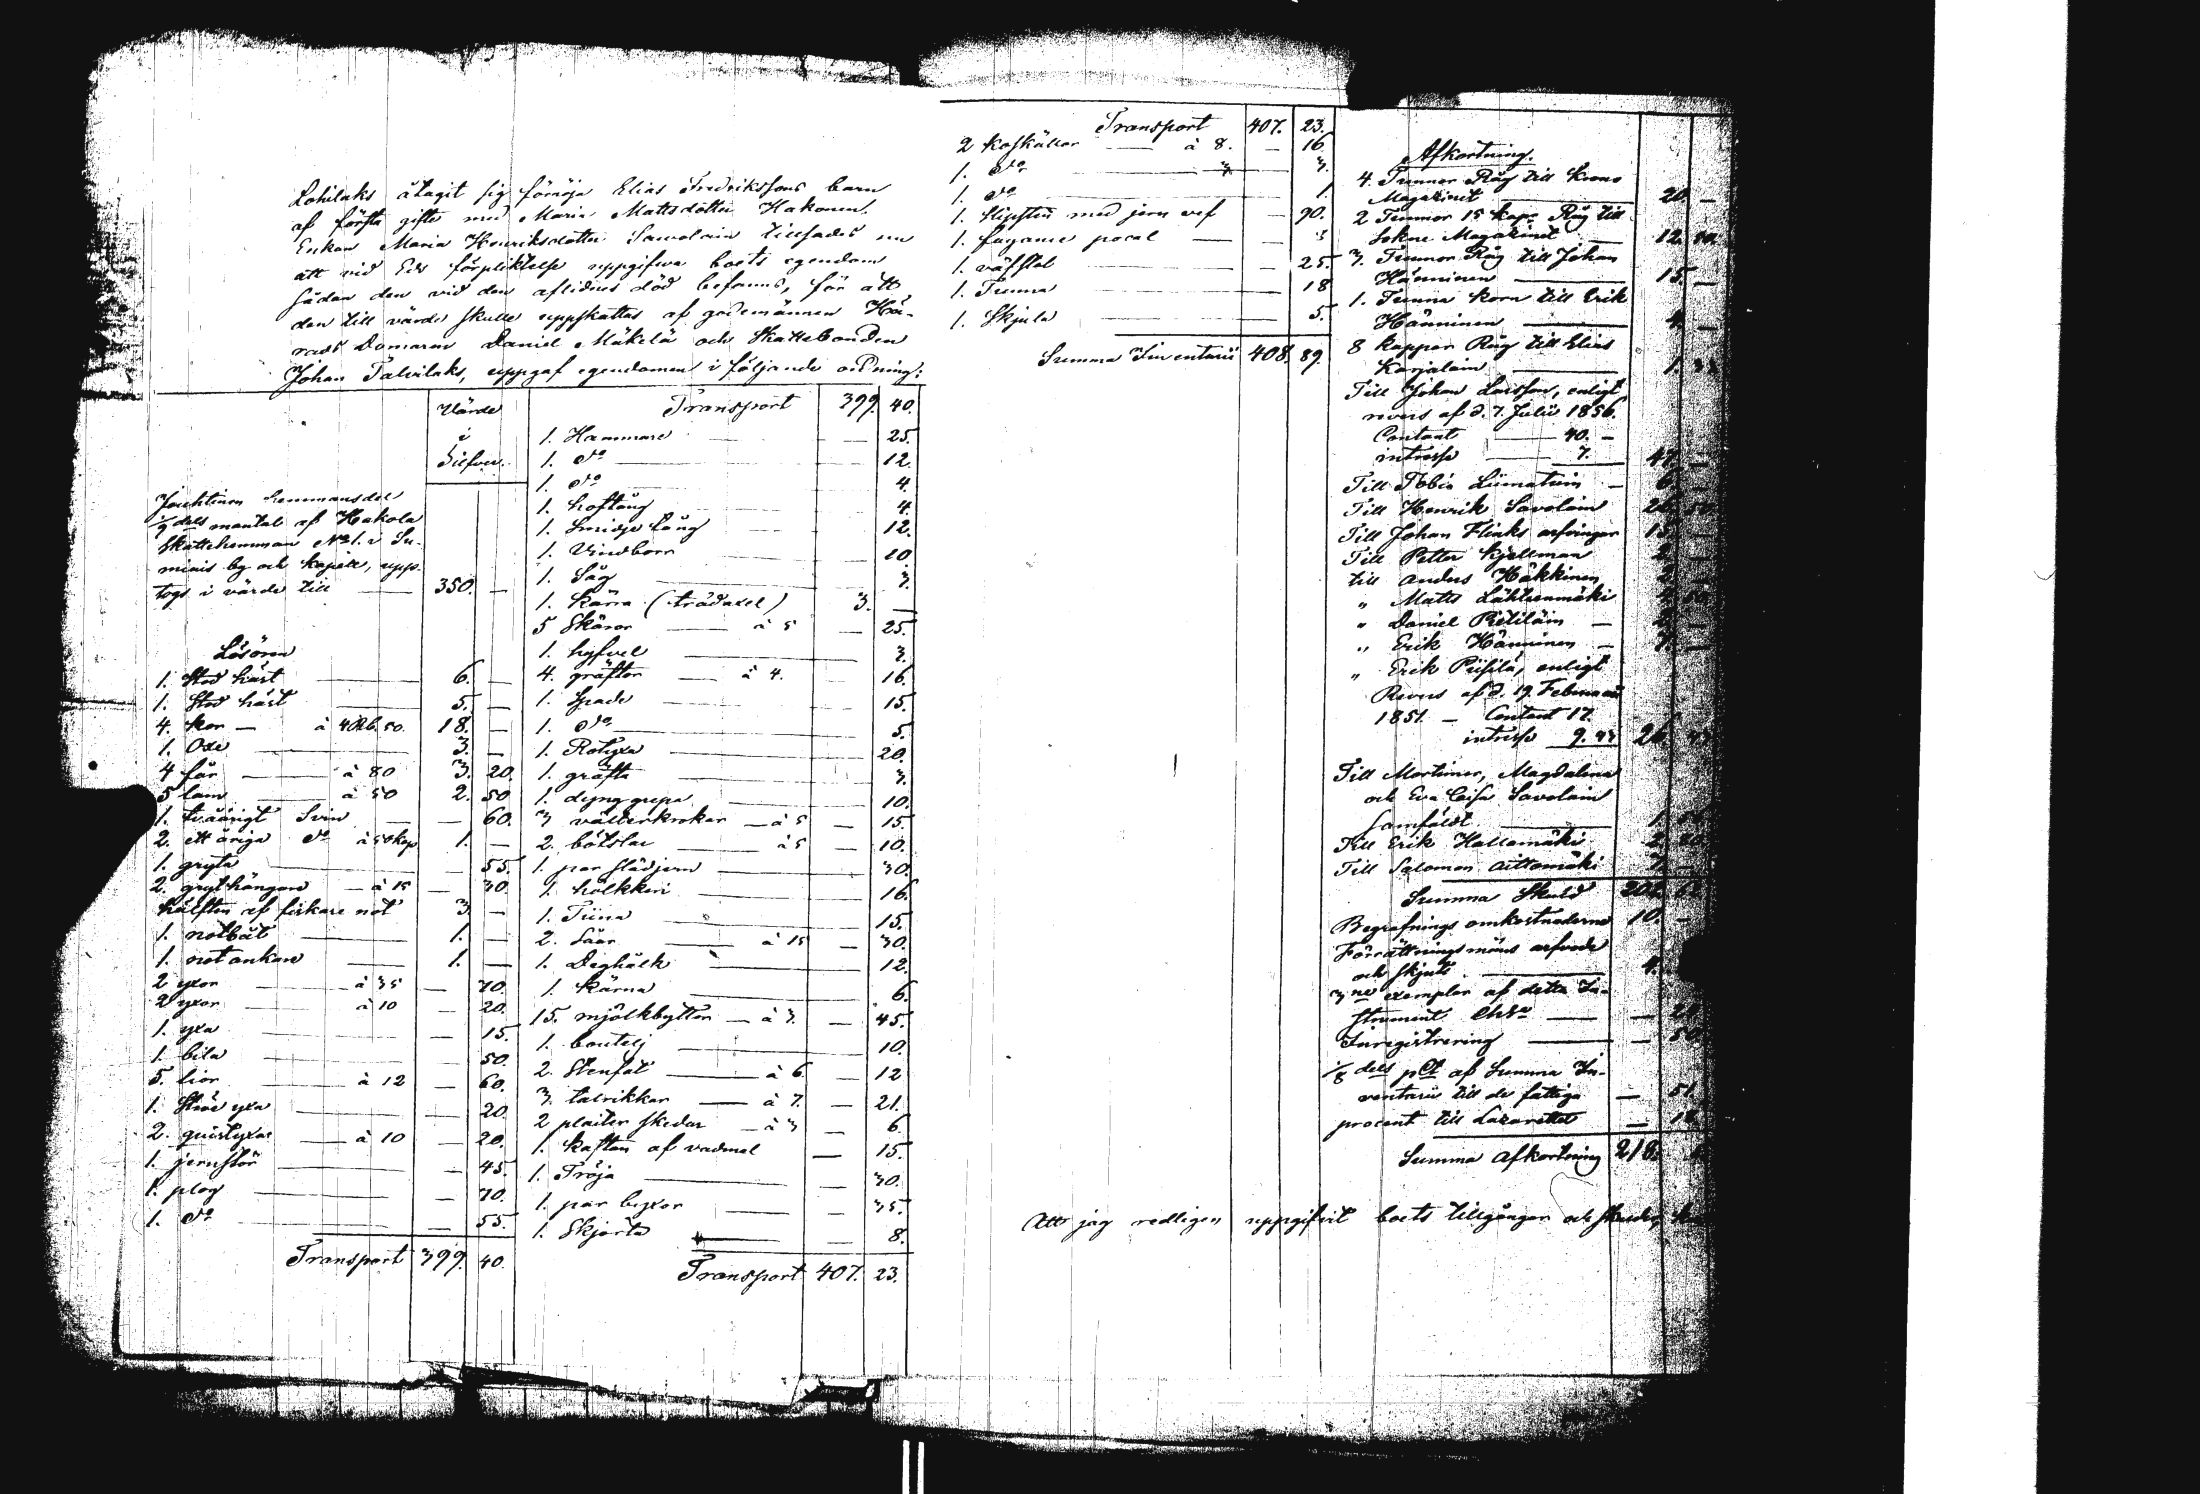 Lohilaks åtagit sig förmöja Elias Fredrikssons barn
af första gifte med Maria Mattsdotter Hakonen.
Enkan Maria Henriksdotter Savolain tillsades nu
att vid Eds förpliktelse uppgifva boets egendom
sådan den vid den aflidnes död befanns, för att
den till värde skulle uppskattas af godemännen Hä-
rads Domaren Daniel Mäkelä och Skattebonden
Johan Talvilaks, uppgaf egendomen i följande ordning:
Värde
i
Silfver.
hemmansdel
1/9 dels mantal af Hakola
Skattehemman No 1. i Su-
miais by och kapell, upp-
togs i värde till 350. —
Lösören
1. Stod häst 6. —
1. Stod häst 5. —
4. kor — à 4 Rub. 50. 18. —
1. Oxe 3. —
4 får à 80 3. 20.
5 lam à 50 2. 50
1. tvåårigt Svin — 60.
2. ett åriga do à 50 kop 1. —
1. gryta 55.
2. grythängare à 15 — 30.
hälften af fiskare not 3. —
1. notbåt 1. —
1. not ankare 1. —
2 yxor à 35 — 70.
2 yxor à 10 — 20.
1. yxa 15.
1. bila 50.
5. liar à 12 — 60.
1. yxa — 20.
2. quistyxor à 10 — 20.
1. jernstör — 45.
1. plog — 70.
1. do — 55.
Transport 399. 40.
Transport 399. 40.
1. Hammare — 25.
1. do — 12.
1. do 4.
1. hoftång 4.
1. Smidje tång 12.
1. Vindborr 10
1. Såg 3.
1. Kärra (trädaxel) 3. —
5 Skäror à 5 — 25.
1. hyfvel 3.
4. gräftor à 4. 16.
1. Spade 15.
1. do 5.
1. Rotyxa 20.
1. gräfta 3.
1. dynggrepe 10.
3 välterkrokar à 5 — 15.
2. båtslar à 5 — 10.
1. par slädjern 30.
1. hölkkeri 16.
1. Tiina 15.
2. Såar à 15 — 30.
1. Deghålk 12.
1. Kärna 6.
15. mjölkbyttor — à 3. — 45.
1. boutelj 10.
2. Stenfat à 6. — 12
3. talrikkar à 7. — 21.
2 plaiter skedar — à 3 — 6.
1. Kaftan af vadmal — 15.
1. Tröja — 30.
1. par byxor — 35.
1. Skjorta — 8.
Transport 407. 23.
Transport 407. 23.
2 koskällor à 8. — 16.
1. do 3.
1. do 1.
1. Slipsten med jern vef — 90.
1. fayance pocal — 3
1. väfstol — 25.
1. Tunna — 18
1. Skjula 5.
Summa Inventarii 408. 89.
Afkortning.
4. Tunnor Råg till Krono
Magasinet 20. —
2 Tunnor 15 kapr Råg till
Sokne Magasinet 12.
3. Tunnor Råg till Johan
Hänninen 15. —
1. Tunna Korn till Erik
Hänninen 4. —
8 kappor Råg till Elias
Karjalain 1.
Till Johan Larsson, enligt
revers af d. 7. Julii 1856.
Contant 40. —
intresse 7. 47. —
Till Tobia Liimatain — 6.
Till Henrik Savolain
Till Johan Flinks arfvingar 15.
Till Petter Kjellman 2.
till Anders Häkkinen 2
„ Matts Lähteenmäki
„ Daniel Pietiläin —
„ Erik Hänninen —
„ Erik Piisilä, enligt
Revers af d. 19. Februarii
1851. — Contant 17.
intresse 9. 43 26. 43
Till Mortimer, Magdalena
och Eva Caisa Savolain
samfäldt 1.
Till Erik Hallamäki 2.
Till Salomon Aittomäki 7.
Summa Skuld
Begrafnings omkostnaderne 10. —
Förrättningsmäns arfvode
och skjuts 4.
3ne exemplar af detta In-
strument
Inregistrering — 50.
1/8 dels pCt af Summa In-
ventarii till de fattige — 51.
procent till Lazarettet —
Summa Afkortning 218.
Att jag redligen uppgifvit boets tillgångar och skulder,